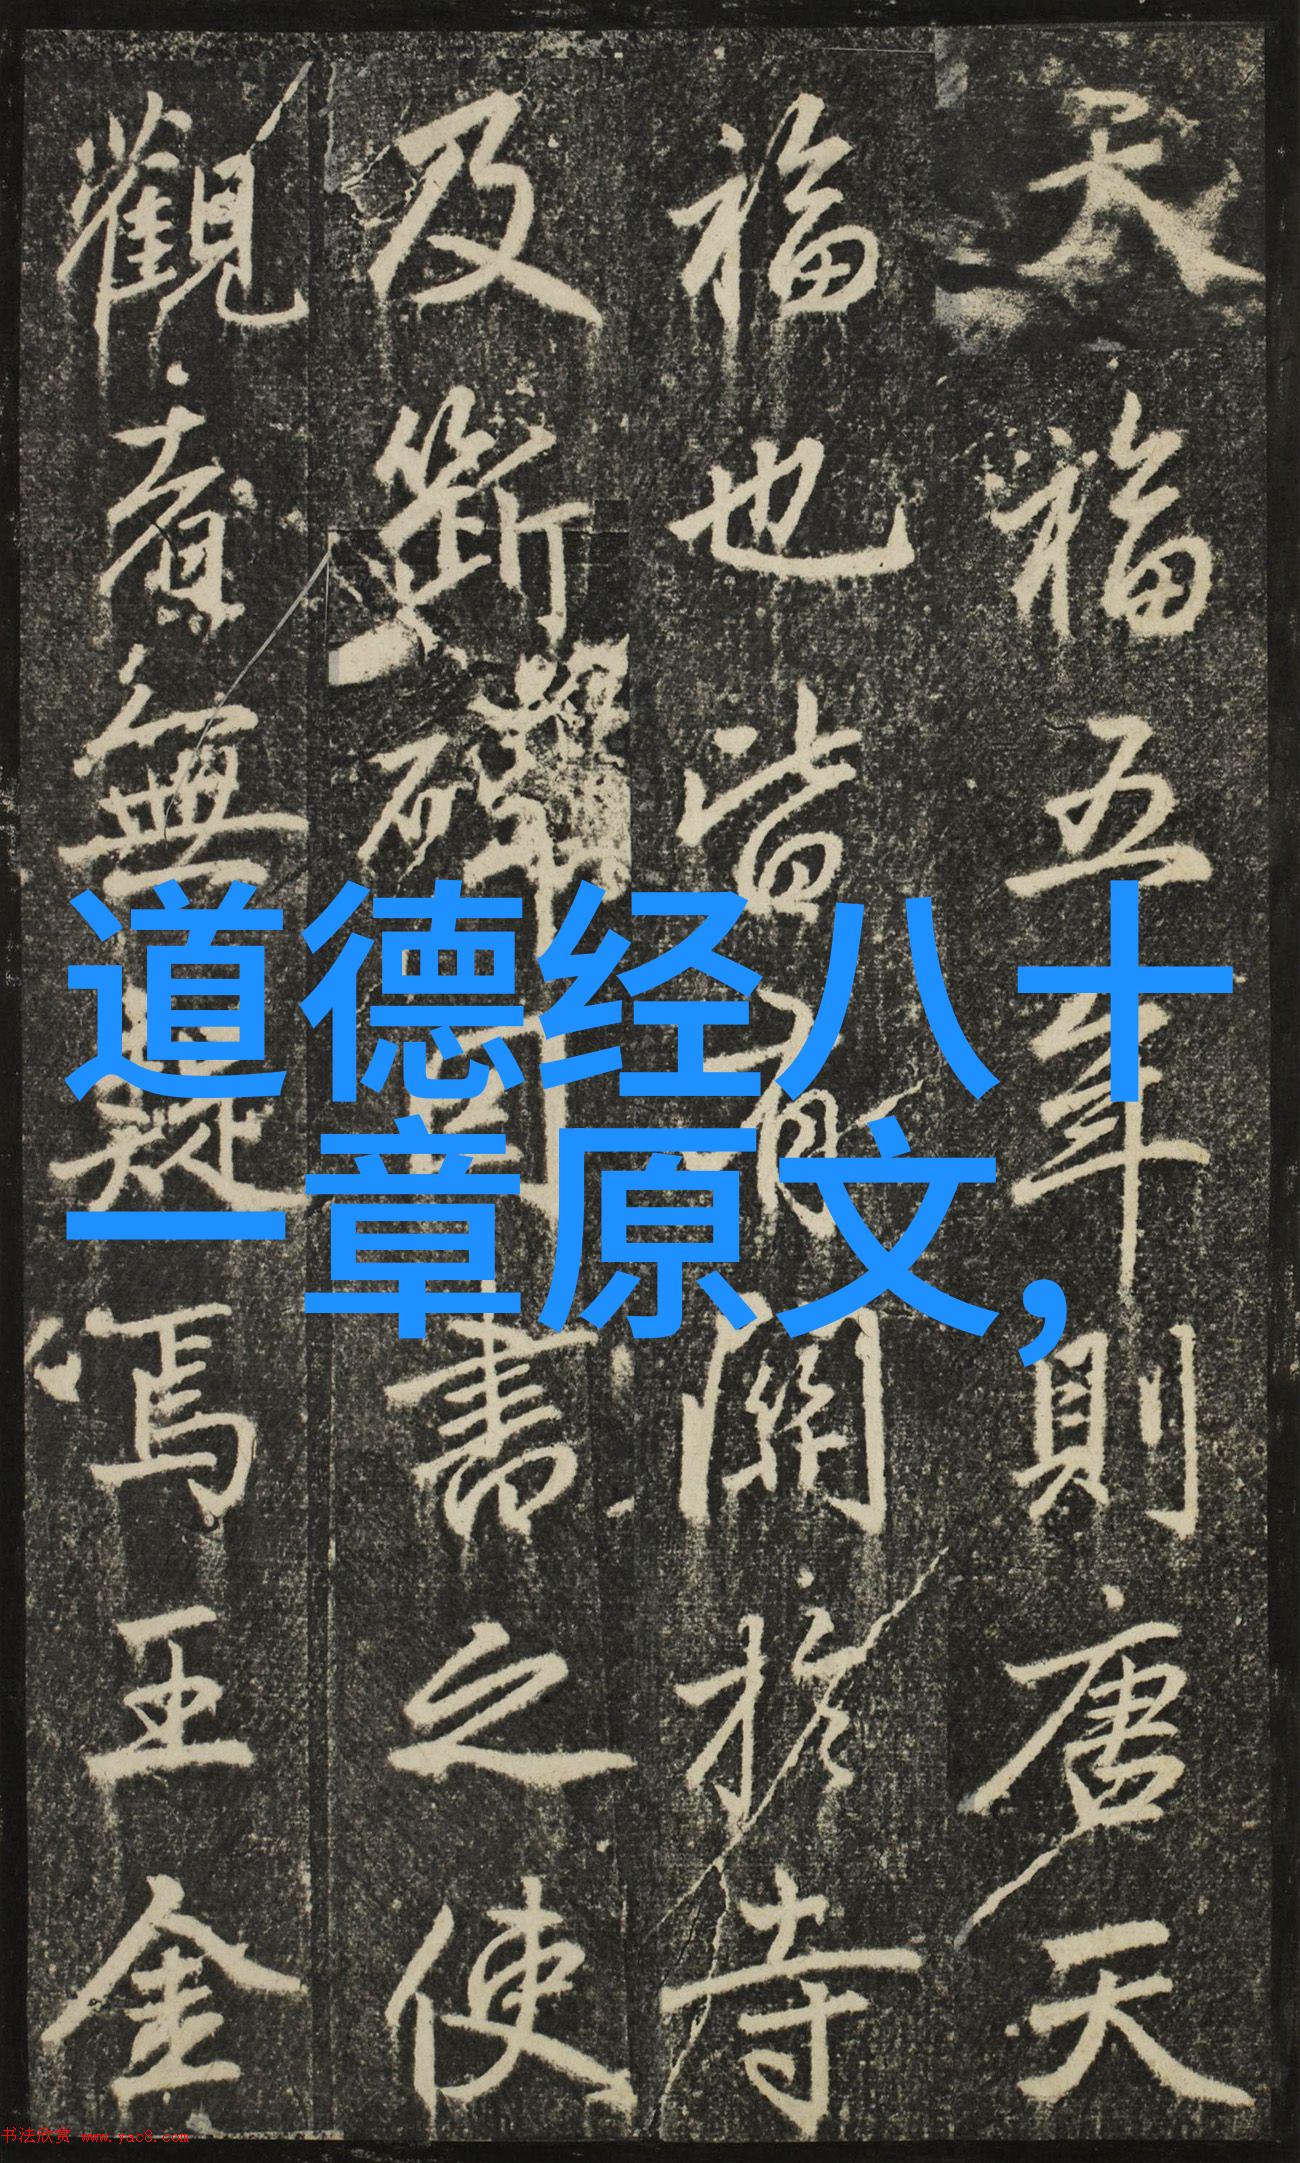 天福五年則唐天
福也皆有關於寺
及斷碑因書之使
觀者無疑焉王金
道德经八十
一章原文，
书法欣赏 www.yac8.com